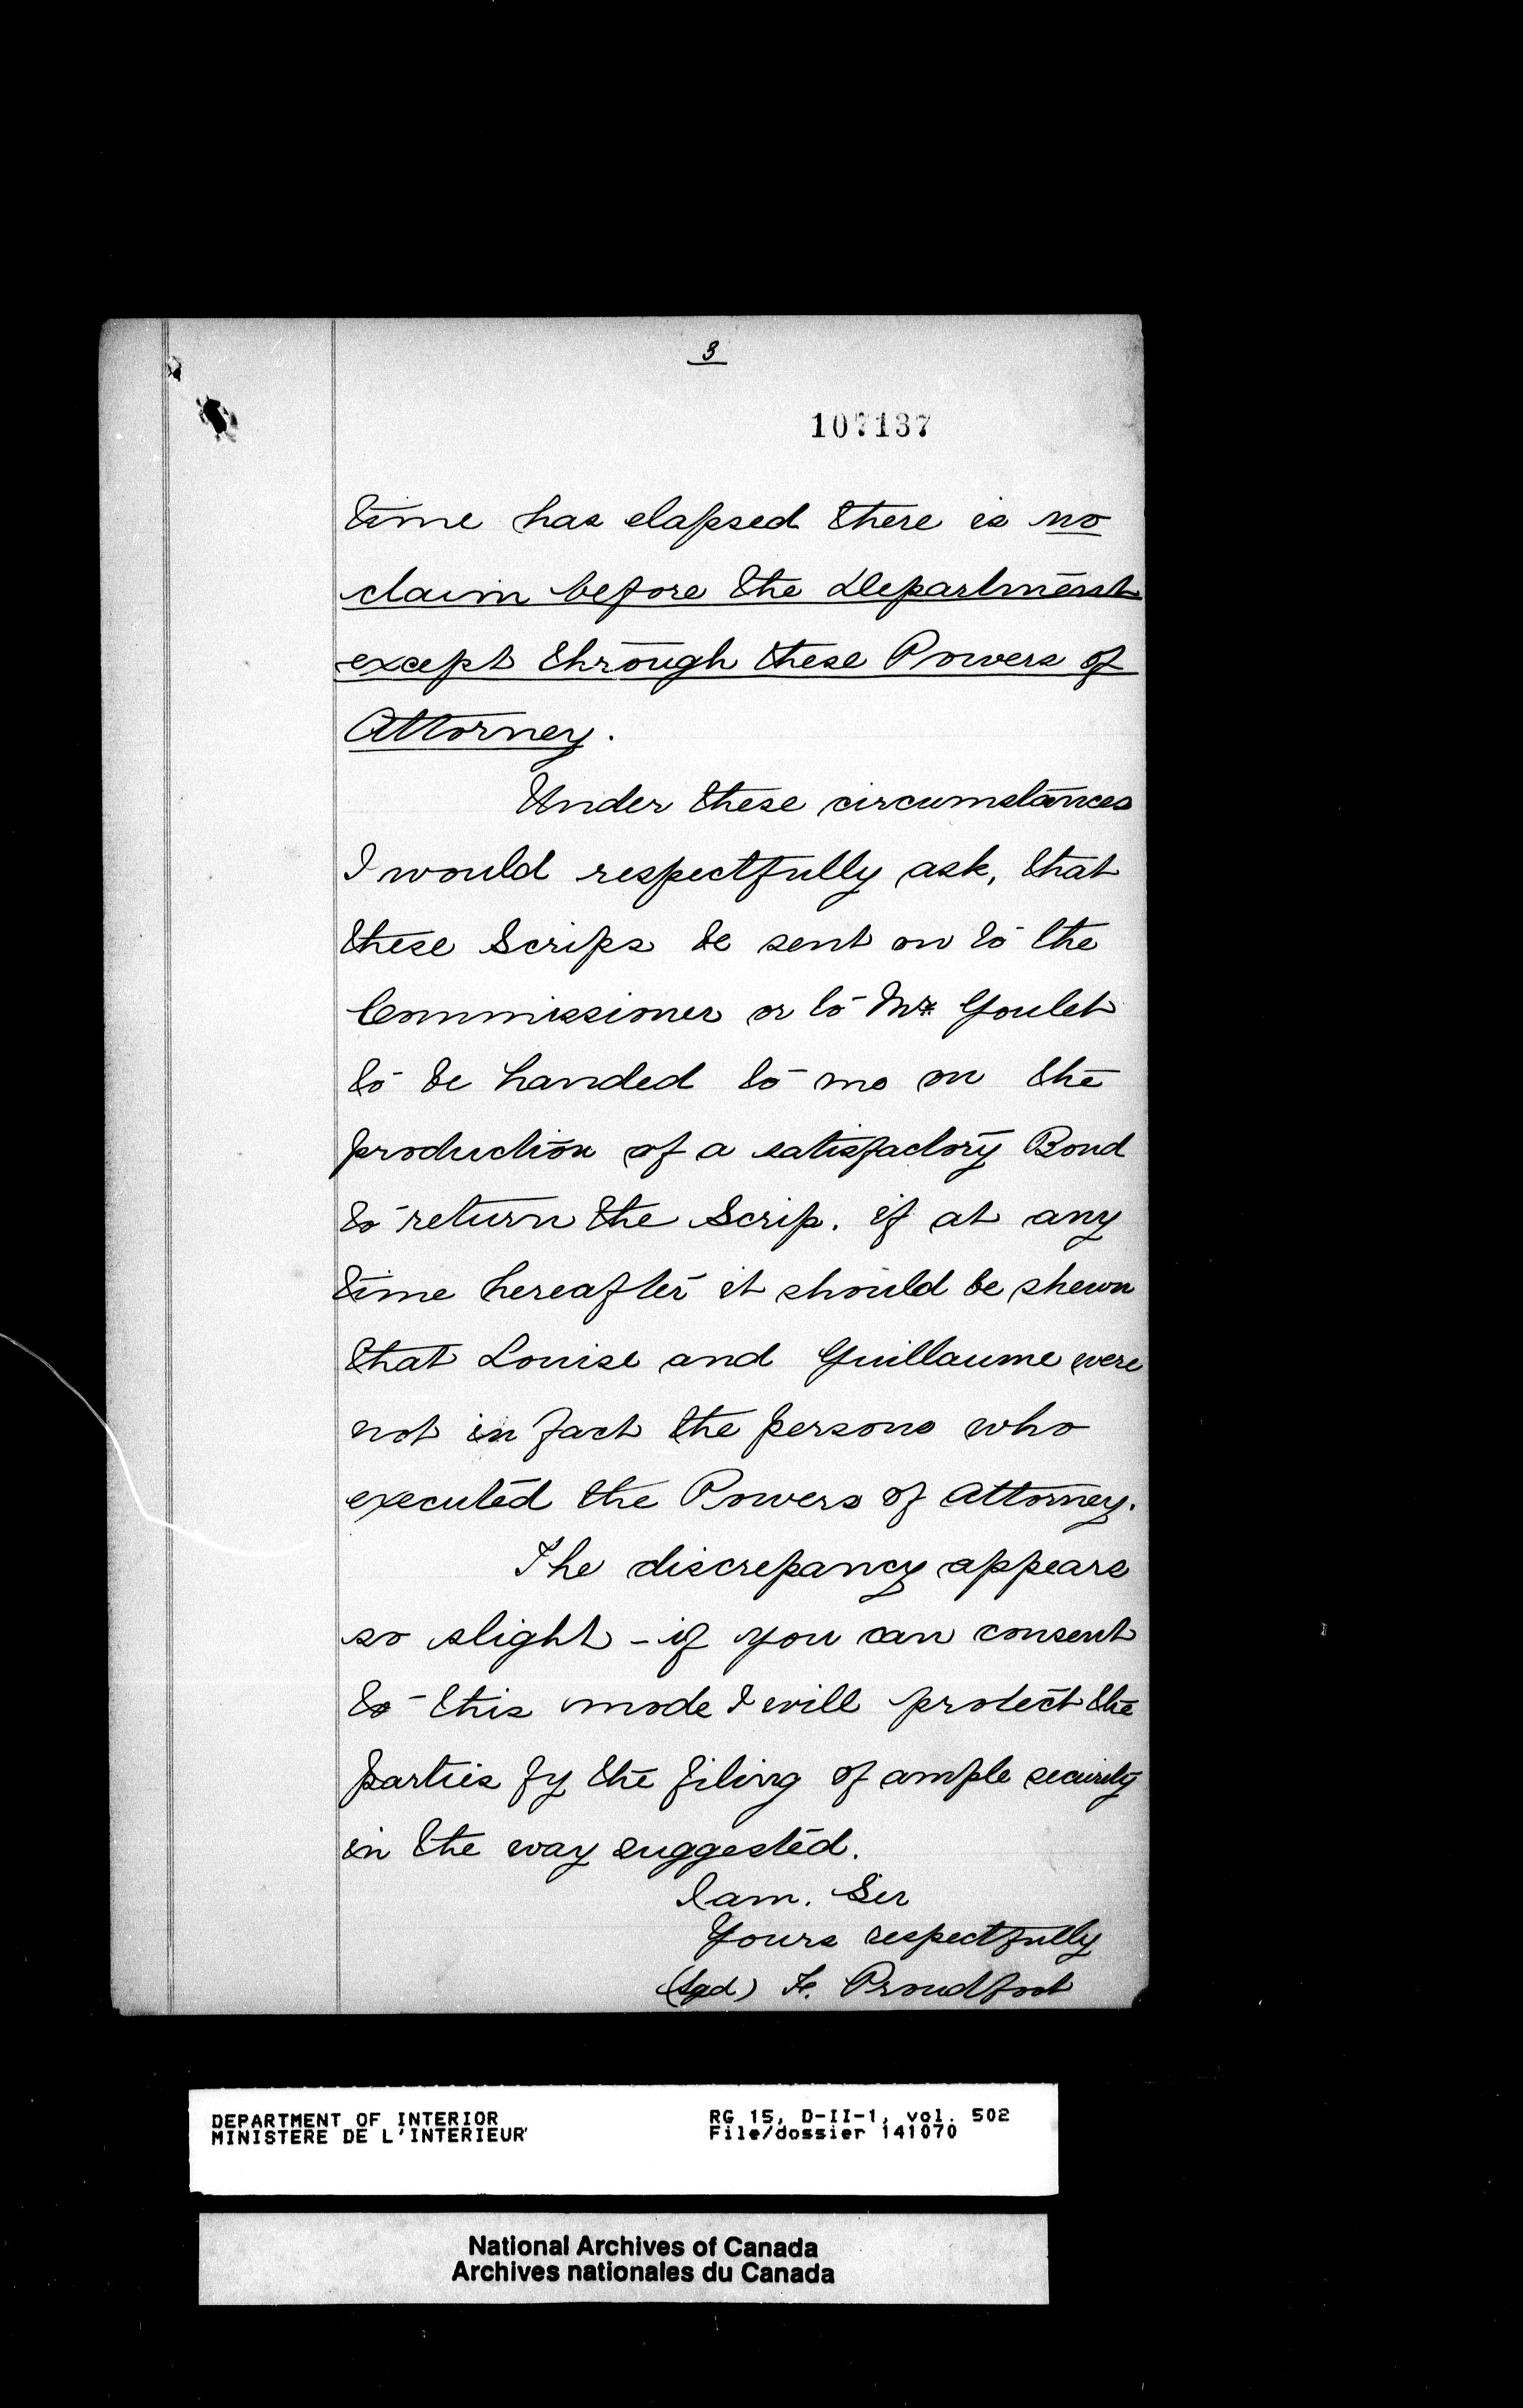 3
107137
time has elapsed there is no
claim before the Department
except through these Powers of
Attorney.
Under these circumstances
I would respectfully ask, that
these Scrips be sent on to the
Commissioner or to Mr Goulet
to be handed to me on the
production of a satisfactory Bond
to return the Scrip. if at any
time hereafter it should be shewn
that Louise and Guillaume were
not in fact the persons who
executed the Powers of Attorney.
The discrepancy appears
so slight - if you can consent
to this mode I will protect the
parties by the filing of ample security
in the way suggested.
I am. Sir
Yours respectfully
(Sgd) F. Proudfoot
DEPARTMENT OF INTERIOR
MINISTERE DE L'INTERIEUR
RG 15, D-II-1, vol. 502
File/dossier 141070
National Archives of Canada
Archives nationales du Canada